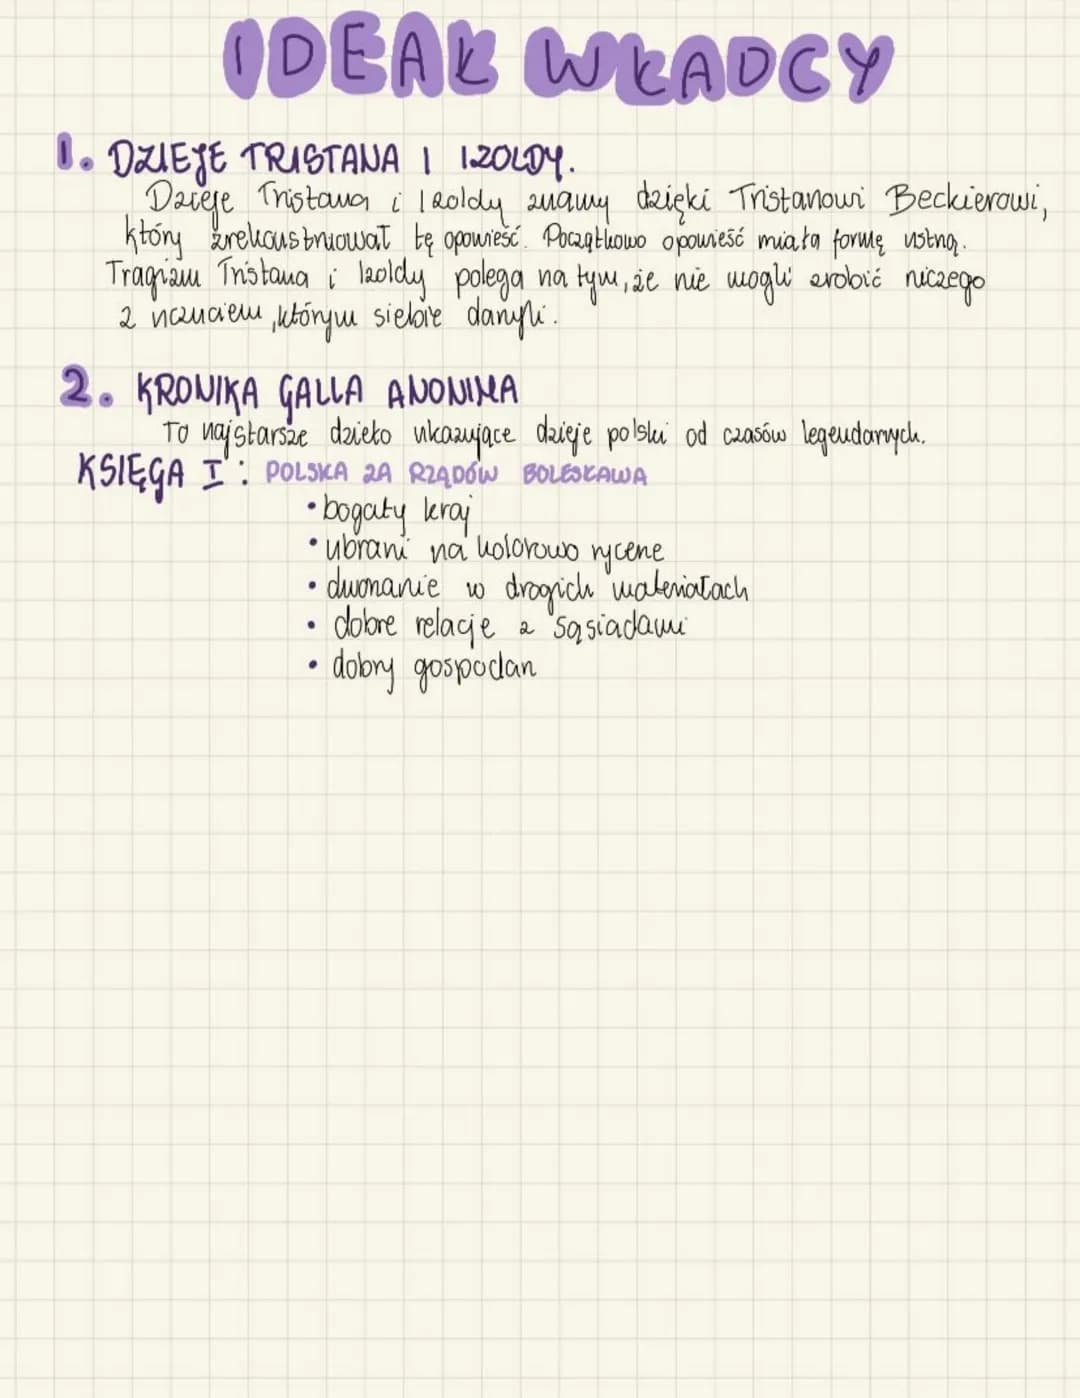 IDEAŁ WŁADCY
1. DZIEJE TRISTANA I IZOLDY.
Dzieje Tristana i Izoldy znamy dzięki Tristanowi Beckierowi,
który zrekonstruował tę opowieść. Początkowo opowieść miała formę ustną.
Tragizm Tristana i Izoldy polega na tym, że nie mogli zrobić niczego
z uczuciem, którym siebie darzyli.
2. KRONIKA GALLA ANONIMA
To najstarsze dzieło ukazujące dzieje polski od czasów legendarnych.
KSIĘGA I: POLSKA ZA RZĄDÓW BOLESŁAWA
• bogaty kraj
• ubrani na kolorowo rycerze
• dworzanie w drogich materiałach
• dobre relacje z sąsiadami
• dobry gospodarz